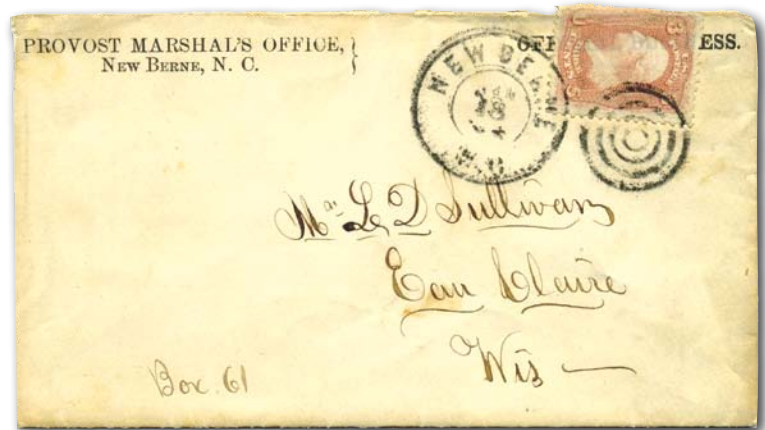 PROVOST MARSHAL'S OFFICE,
NEW BERNE, N. C.
ESS.
NEW BERNE
N.C.
Mr. L. D. Sullivan
Eau Claire
Wis
Box. 61